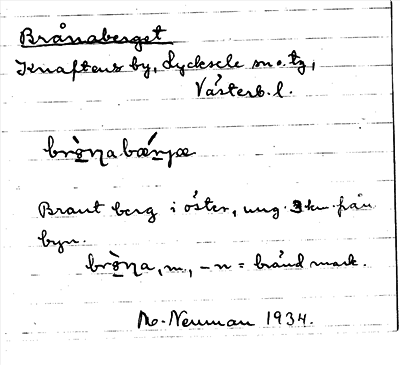 Brånaberget
Knaftens by, Lycksele sn o. tg,
Västerb. l.
brò̱ŋabǽ̱rjæ
Brant berg i öster, ung. 3 km från
byn.
brò̱ŋa, m, -n = bränd mark.
M. Neuman 1934.